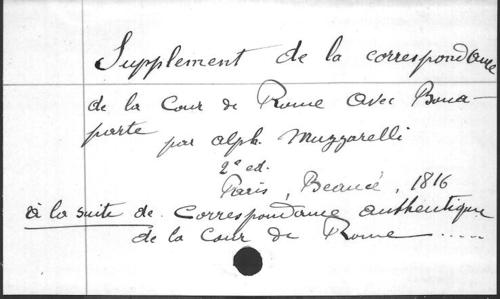 Supplement de la correspondance
de la Cour de Rome avec Bona-
parte par alph. Muzzarelli
2e ed.
Paris, Beaucé, 1816
à la suite de Correspondance authentique
de la Cour de Rome .....